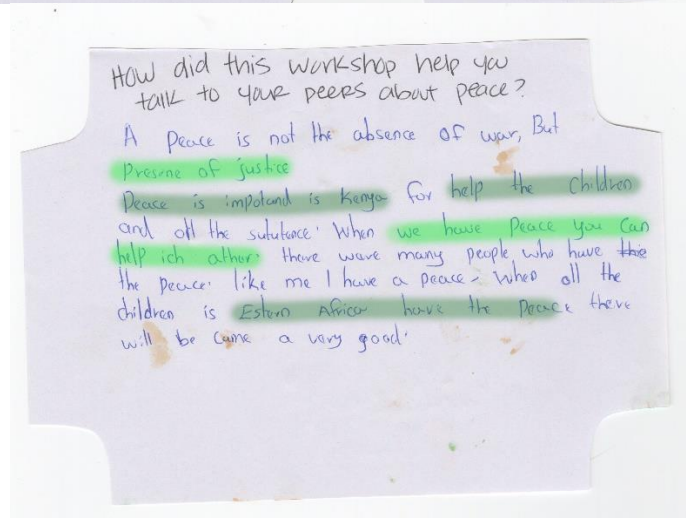 How did this workshop help you
talk to your peers about peace?
A Peace is not the absence of war, But
Presene of justice
Peace is impotand is Kenya for help the Children
and oll the sututence. When we have Peace you Can
help ich other. there wave many people who have
the peace. like me I have a peace. When all the
children is Estern Africa have the Peace there
will be came a very good.